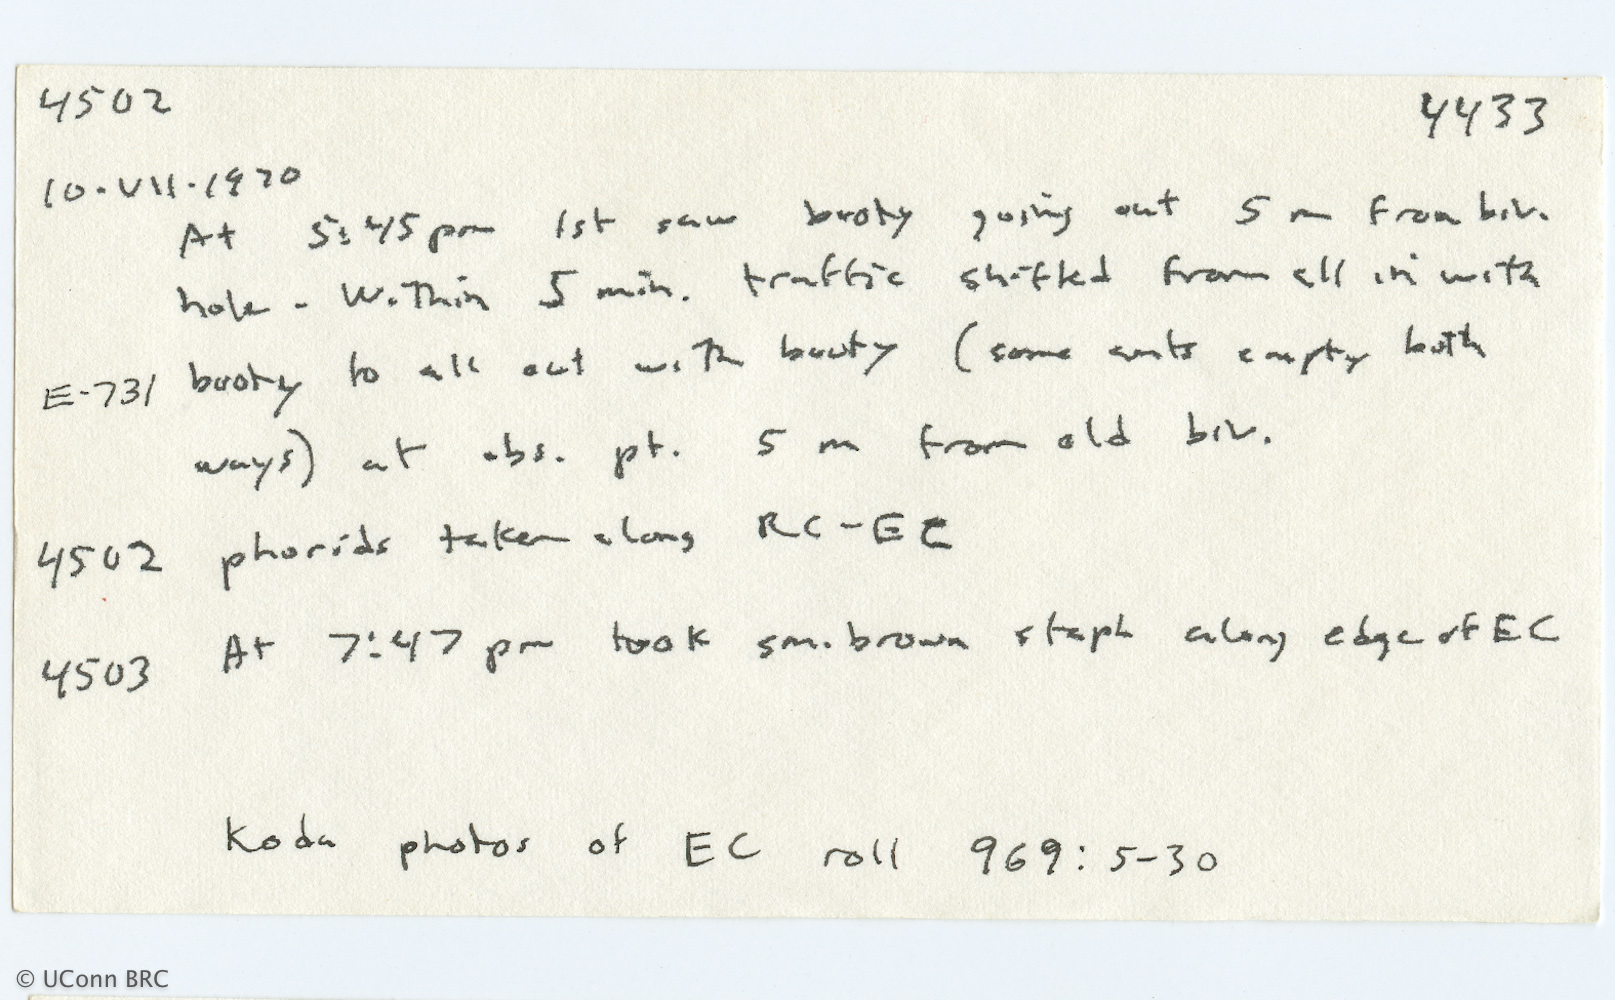 4502 4433
10.VII.1970
At 5:45pm 1st saw booty going out 5 m from biv.
hole - Within 5 min. traffic shifted from all in with
E-731 booty to all out with booty (some ants empty both
ways) at obs. pt. 5 m from old biv.
4502 phorids taken along RC-EC
4503 At 7:47 pm took sm. brown staph along edge of EC
Koda photos of EC roll 969: 5-30
© UConn BRC